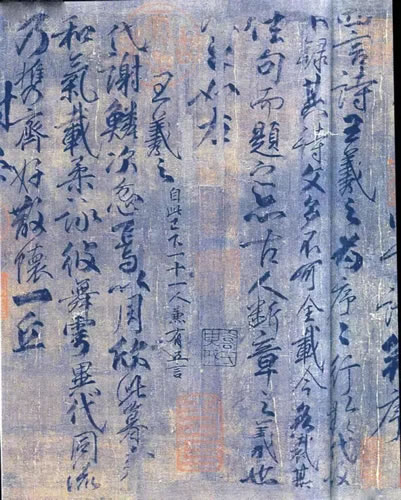 四言詩王羲之為序々行於代故
不錄其詩文多不可全載今各裁其
佳句而題之亦古人斷章之義也
王羲之
自此已下一十一人兼有五言
代謝鱗次忽焉以周欣此暮春
和氣載柔詠彼舞雩異代同流
乃攜齊好散懷一丘